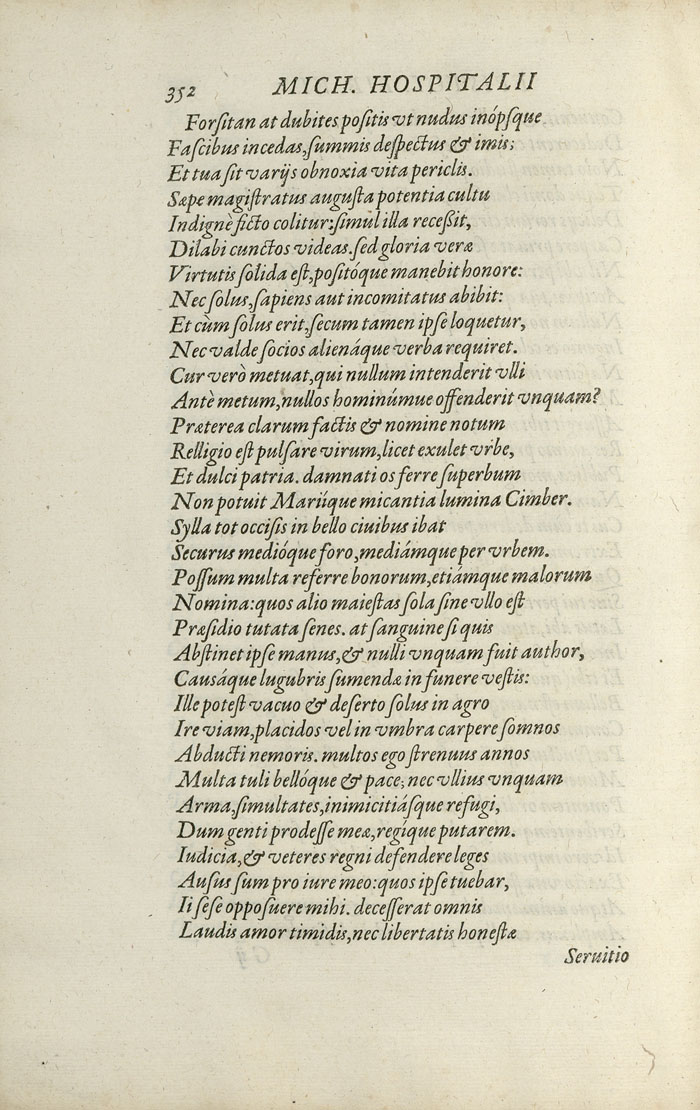 352 MICH. HOSPITALII
Forſitan at dubites poſitis vt nudus inópſque
Faſcibus incedas, ſummis deſpectus & imis;
Et tua ſit varijs obnoxia vita periclis.
Sæpe magiſtratus auguſta potentia cultu
Indignè ficto colitur: ſimul illa receßit,
Dilabi cunctos videas. ſed gloria veræ
Virtutis ſolida eſt, poſitóque manebit honore:
Nec ſolus, ſapiens aut incomitatus abibit:
Et cùm ſolus erit, ſecum tamen ipſe loquetur,
Nec valde ſocios alienáque verba requiret.
Cur verò metuat, qui nullum intenderit vlli
Antè metum, nullos hominúmue offenderit vnquam?
Præterea clarum factis & nomine notum
Relligio eſt pulſare virum, licet exulet vrbe,
Et dulci patria. damnati os ferre ſuperbum
Non potuit Mariíque micantia lumina Cimber.
Sylla tot occiſis in bello ciuibus ibat
Securus medióque foro, mediámque per vrbem.
Poſſum multa referre bonorum, etiámque malorum
Nomina: quos alio maieſtas ſola ſine vllo eſt
Præſidio tutata ſenes. at ſanguine ſi quis
Abſtinet ipſe manus, & nulli vnquam fuit author,
Cauſáque lugubris ſumendæ in funere veſtis:
Ille poteſt vacuo & deſerto ſolus in agro
Ire viam, placidos vel in vmbra carpere ſomnos
Abducti nemoris. multos ego ſtrenuus annos
Multa tuli bellóque & pace; nec vllius vnquam
Arma, ſimultates, inimicitiáſque refugi,
Dum genti prodeſſe meæ, regíque putarem.
Iudicia, & veteres regni defendere leges
Auſus ſum pro iure meo: quos ipſe tuebar,
Ii ſeſe oppoſuere mihi. deceſſerat omnis
Laudis amor timidis, nec libertatis honeſtæ
Seruitio